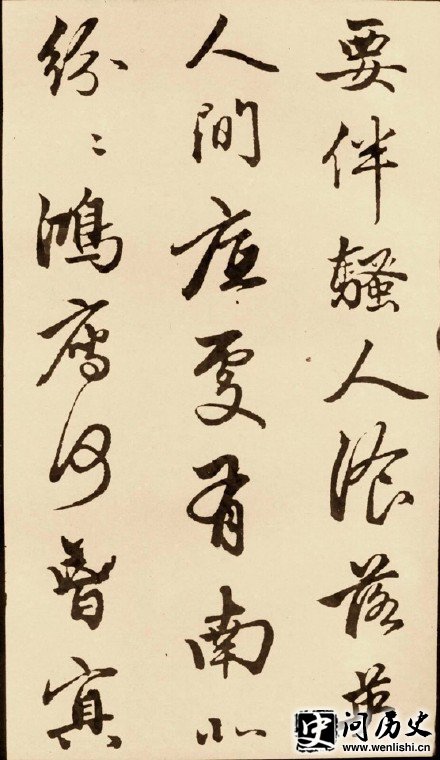 要伴騷人湌落英
人間底處有南北
紛〻鴻雁何曾冥
史 问历史
www.wenlishi.cn